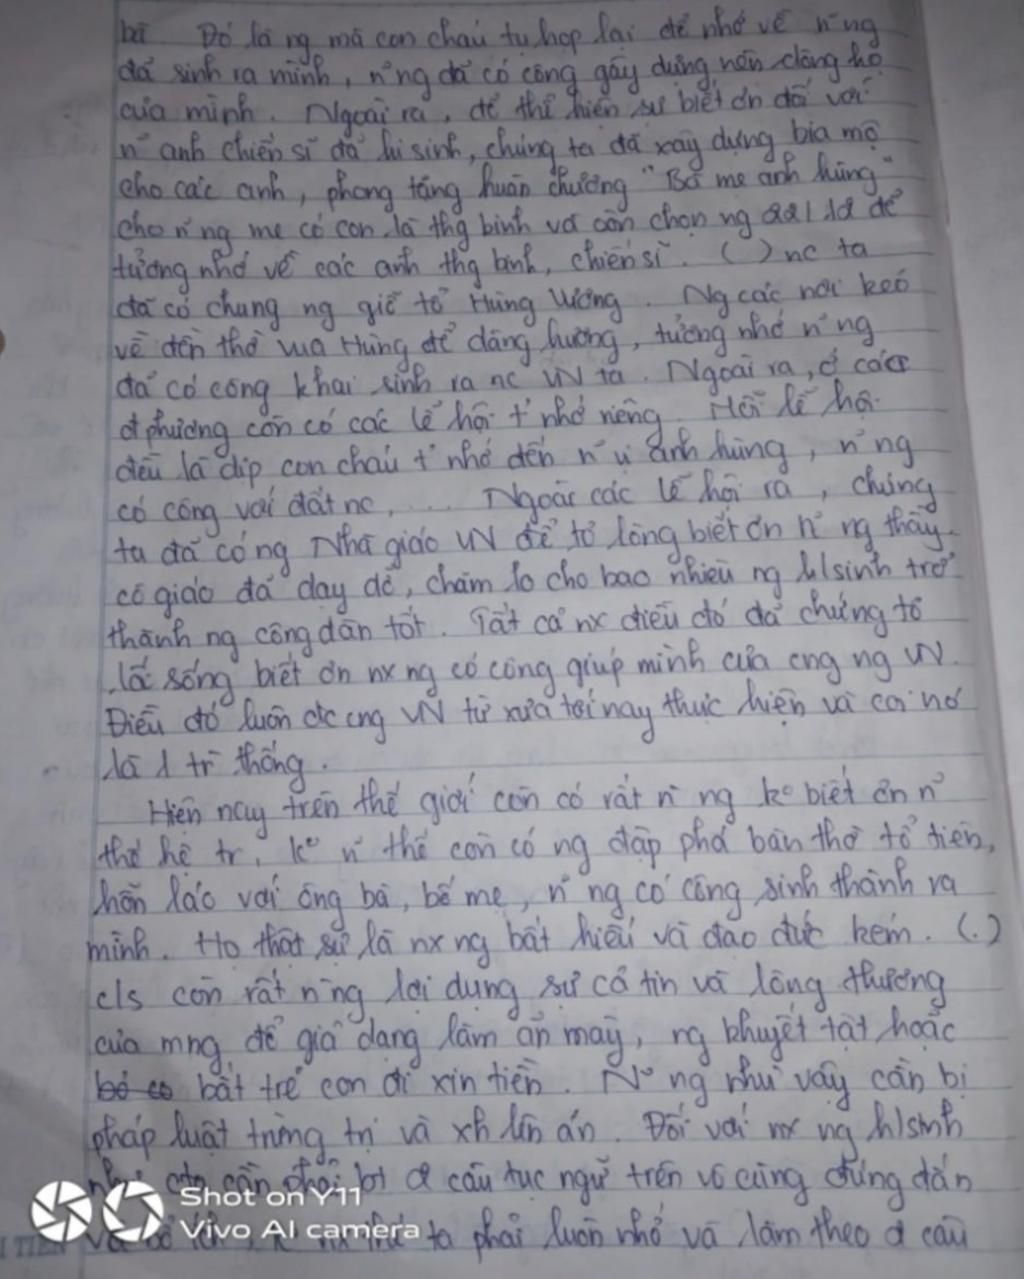 bà Đó là ng mà con cháu tụ họp lại để nhớ về n~ng
đã sinh ra mình, n~ng đã có công gây dựng nên dòng họ
của mình. Ngoài ra, để thể hiện sự biết ơn đối với
n~ anh chiến sĩ đã hi sinh, chúng ta đã xây dựng bia mộ
cho các anh, phong tặng huân chương "Bà mẹ anh hùng"
cho n~ng mẹ có con là thg binh và còn chọn ng 22/12 để
tưởng nhớ về các anh thg binh, chiến sĩ. ( ) nc ta
đã có chung ng giỗ tổ Hùng Vương. Ng các nơi kéo
về đền thờ vua Hùng để dâng hương, tưởng nhớ n~ng
đã có công khai sinh ra nc VN ta. Ngoài ra, ở các
đphương còn có các lễ hội t' nhớ riêng. Mỗi lễ hội
đều là dịp con cháu t' nhớ đến n~ vị anh hùng, n~ng
có công với đất nc, .... Ngoài các lễ hội ra, chúng
ta đã có ng Nhà giáo VN để tỏ lòng biết ơn n~ng thầy
cô giáo đã dạy dỗ, chăm lo cho bao nhiêu ng h/sinh trở
thành ng công dân tốt. Tất cả nx điều đó đã chứng tỏ
lối sống biết ơn nx ng có công giúp mình của cng ng VN.
Điều đó luôn đc cng VN từ xưa tới nay thực hiện và coi nó
là 1 tr` thống.
Hiện nay trên thế giới còn có rất n~ ng ko biết ơn n~
thế hệ tr', ko n~ thế còn có ng đập phá bàn thờ tổ tiên,
hỗn láo với ông bà, bố mẹ, n~ng có công sinh thành ra
mình. Họ thật sự là nx ng bất hiếu và đạo đức kém. (.)
c/s còn rất n~ng lợi dụng sự cả tin và lòng thương
của mng để giả dạng làm ăn mày, ng khuyết tật hoặc
bắt trẻ con đi xin tiền. N~ng như vậy cần bị
pháp luật trừng trị và xh lên án. Đối với nx ng h/sinh
như cta cần phải bt đ câu tục ngữ trên vô cùng đúng đắn
ta phải luôn nhớ và làm theo đ câu
Shot on Y11
Vivo AI camera